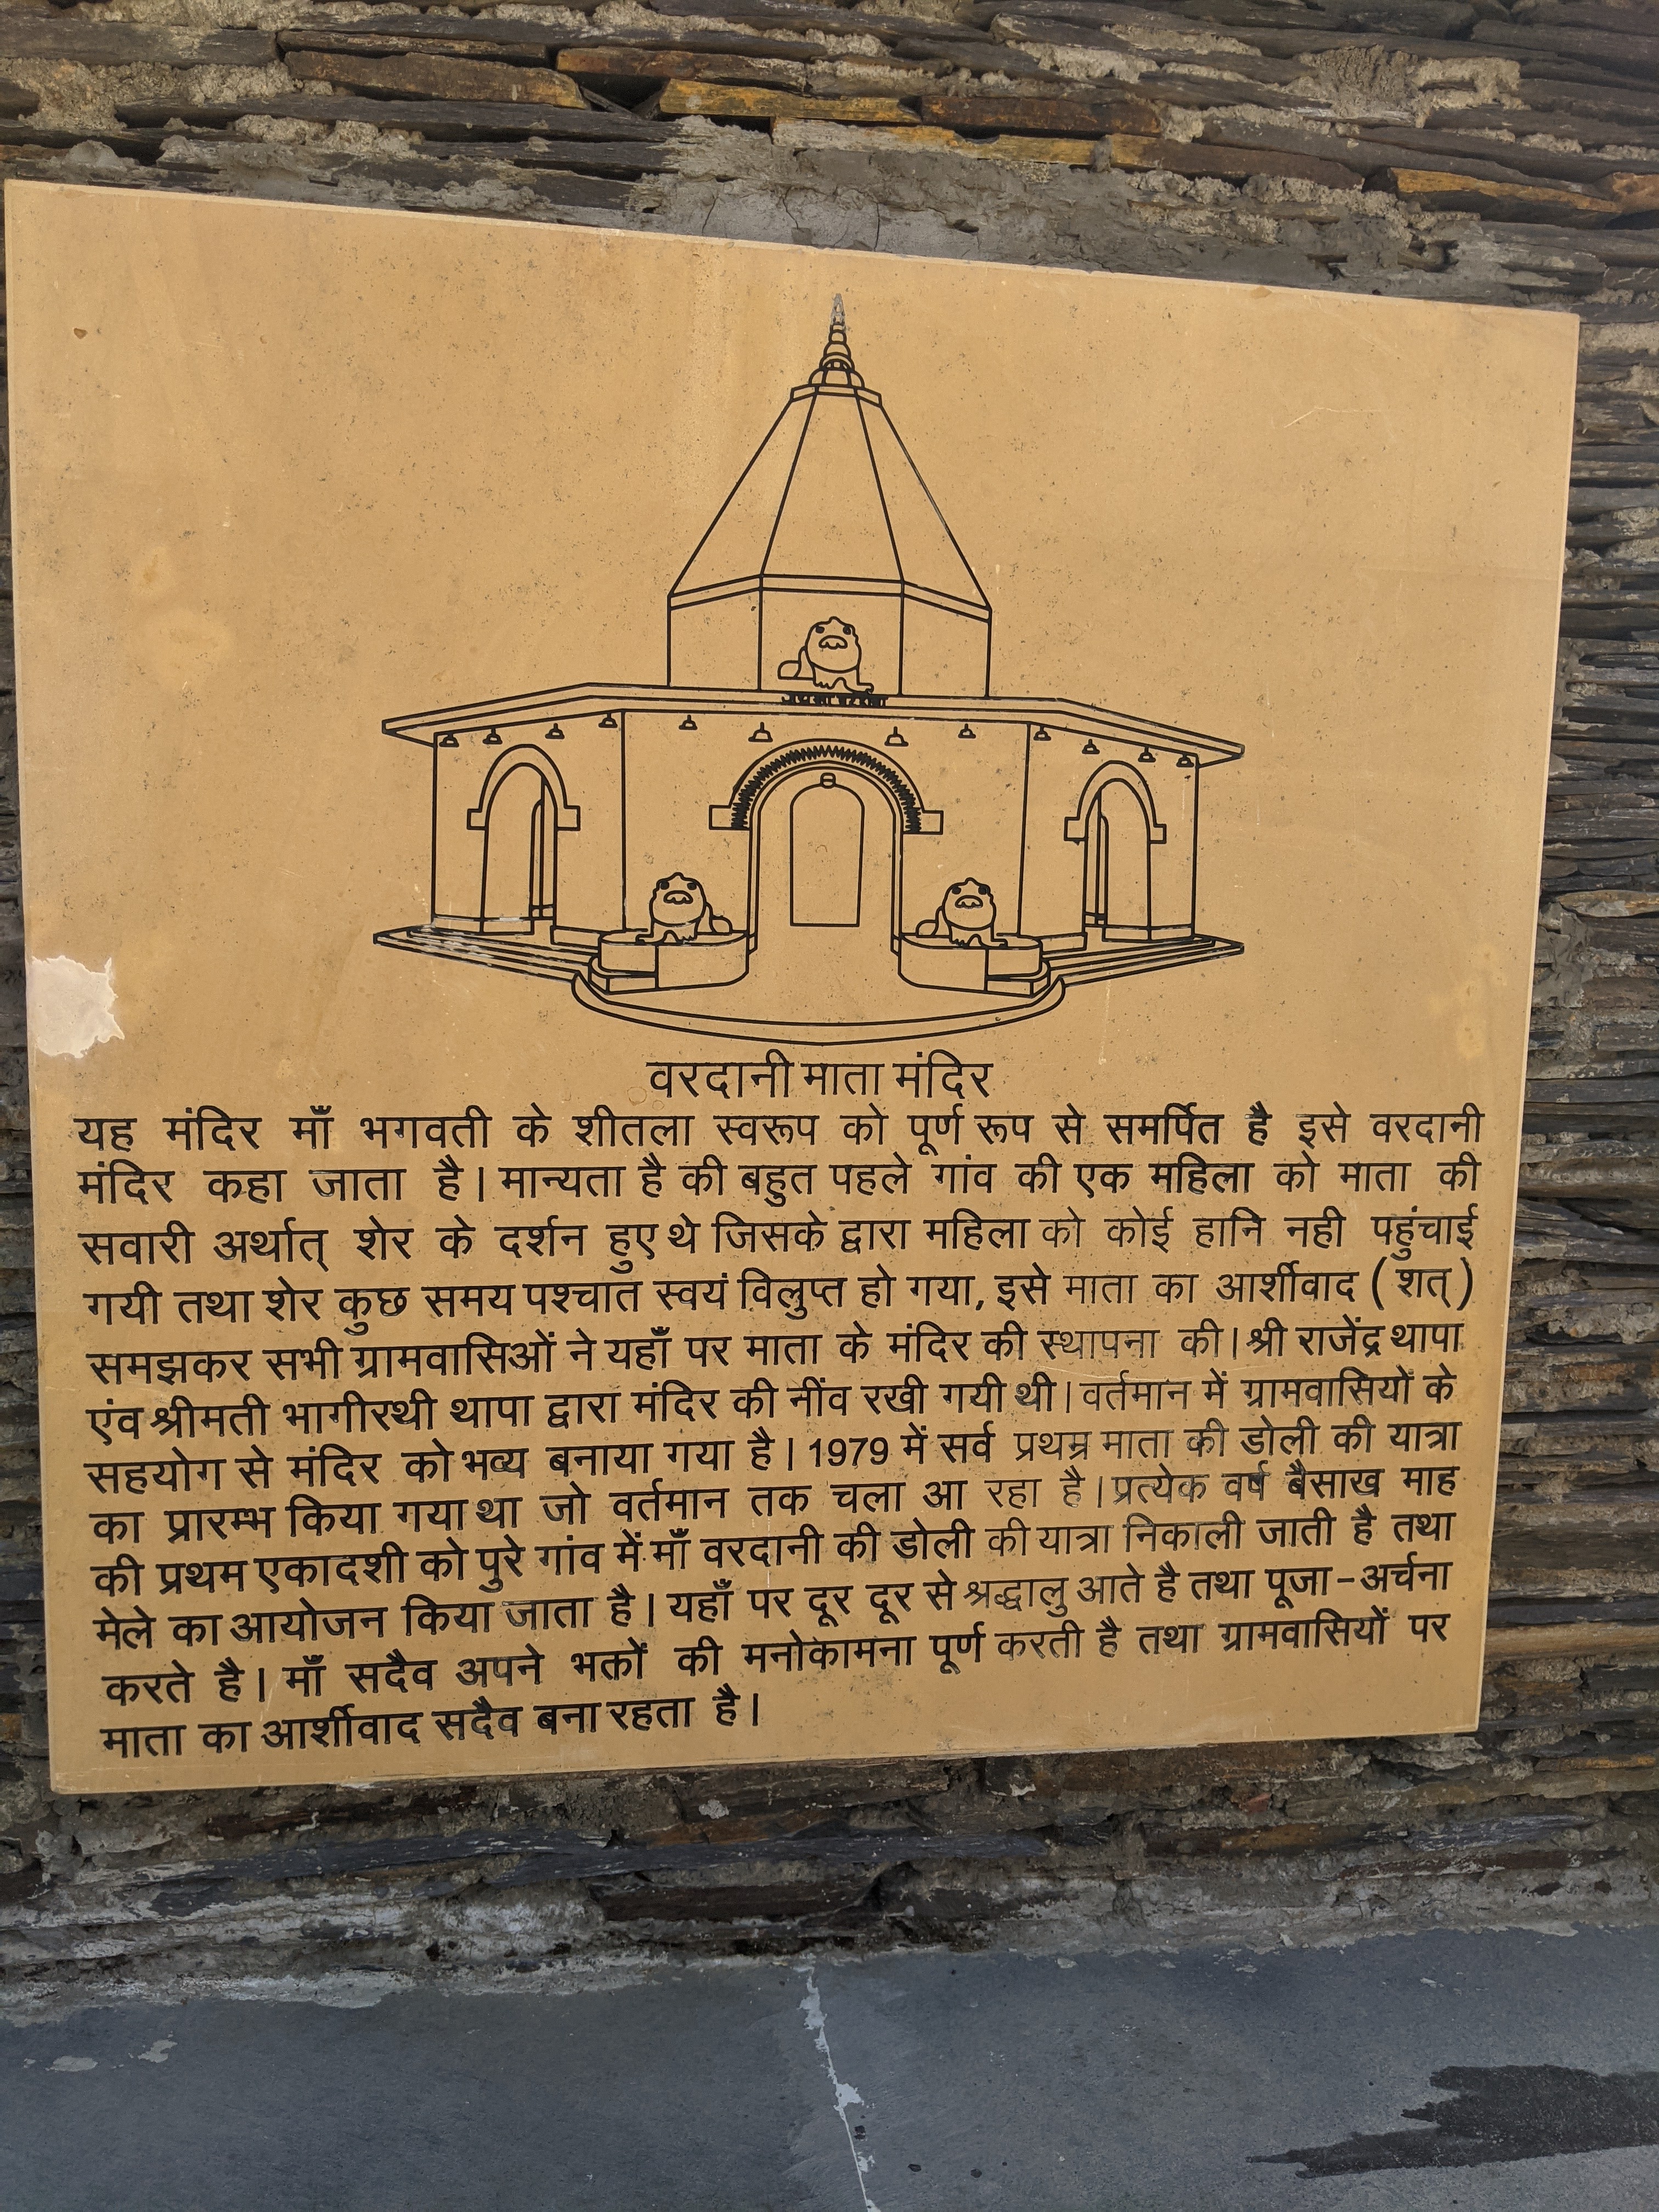 वरदानी माता मंदिर
यह मंदिर माँ भगवती के शीतला स्वरूप को पूर्ण रूप से समर्पित है इसे वरदानी
मंदिर कहा जाता है। मान्यता है की बहुत पहले गांव की एक महिला को माता की
सवारी अर्थात् शेर के दर्शन हुए थे जिसके द्वारा महिला को कोई हानि नही पहुंचाई
गयी तथा शेर कुछ समय पश्चात स्वयं विलुप्त हो गया, इसे माता का आर्शीवाद (शत्)
समझकर सभी ग्रामवासिओं ने यहाँ पर माता के मंदिर की स्थापना की। श्री राजेंद्र थापा
एंव श्रीमती भागीरथी थापा द्वारा मंदिर की नींव रखी गयी थी। वर्तमान में ग्रामवासियों के
सहयोग से मंदिर को भव्य बनाया गया है। 1979 में सर्व प्रथम्र माता की डोली की यात्रा
का प्रारम्भ किया गया था जो वर्तमान तक चला आ रहा है। प्रत्येक वर्ष बैसाख माह
की प्रथम एकादशी को पुरे गांव में माँ वरदानी की डोली की यात्रा निकाली जाती है तथा
मेले का आयोजन किया जाता है। यहाँ पर दूर दूर से श्रद्धालु आते है तथा पूजा-अर्चना
करते है। माँ सदैव अपने भक्तों की मनोकामना पूर्ण करती है तथा ग्रामवासियों पर
माता का आर्शीवाद सदैव बना रहता है।